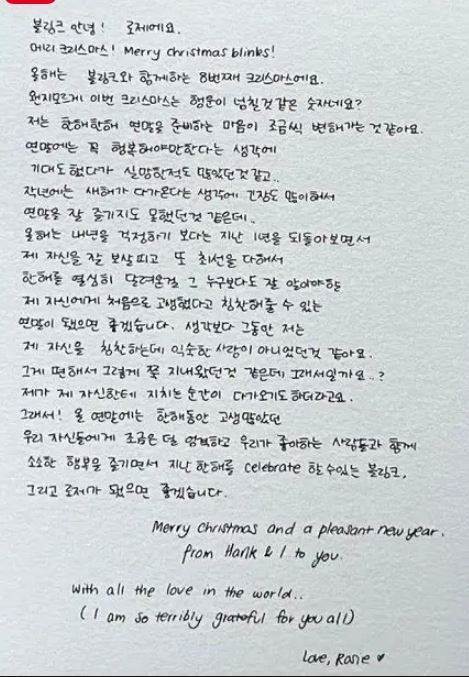 블링크 안녕! 로제에요.
메리 크리스마스! Merry christmas blinks!
올해는 블링크와 함께하는 8번째 크리스마스에요.
왠지모르게 이번 크리스마스는 행운이 넘칠것 같은 숫자네요?
저는 한해한해 연말을 준비하는 마음이 조금씩 변해가는 것 같아요.
연말에는 꼭 행복해야만한다는 생각에
기대도 했다가 실망한적도 많았던것 같고..
작년에는 새해가 다가온다는 생각에 긴장도 많이해서
연말을 잘 즐기지도 못했던것 같은데..
올해는 내년을 걱정하기 보다는 지난 1년을 되돌아보면서
제 자신을 잘 보살피고 또 최선을 다해서
한해를 열심히 달려온걸 그 누구보다도 잘 알아야할
제 자신에게 처음으로 고생했다고 칭찬해줄 수 있는
연말이 됐으면 좋겠습니다. 생각보다 그동안 저는
제 자신을 칭찬하는데 익숙한 사람이 아니었던것 같아요.
그게 편해서 그렇게 쭉 지내왔던것 같은데 그래서일까요..?
제가 제 자신한테 지치는 순간이 다가오기도 하더라고요.
그래서! 올 연말에는 한해동안 고생많았던
우리 자신들에게 조금은 덜 엄격하고 우리가 좋아하는 사람들과 함께
소소한 행복을 즐기면서 지난 한해를 celebrate 할 수있는 블링크,
그리고 로제가 됐으면 좋겠습니다.
Merry christmas and a pleasant new year.
from Hank & I to you.
With all the love in the world..
(I am so terribly grateful for you all)
Love, Rosie ♥